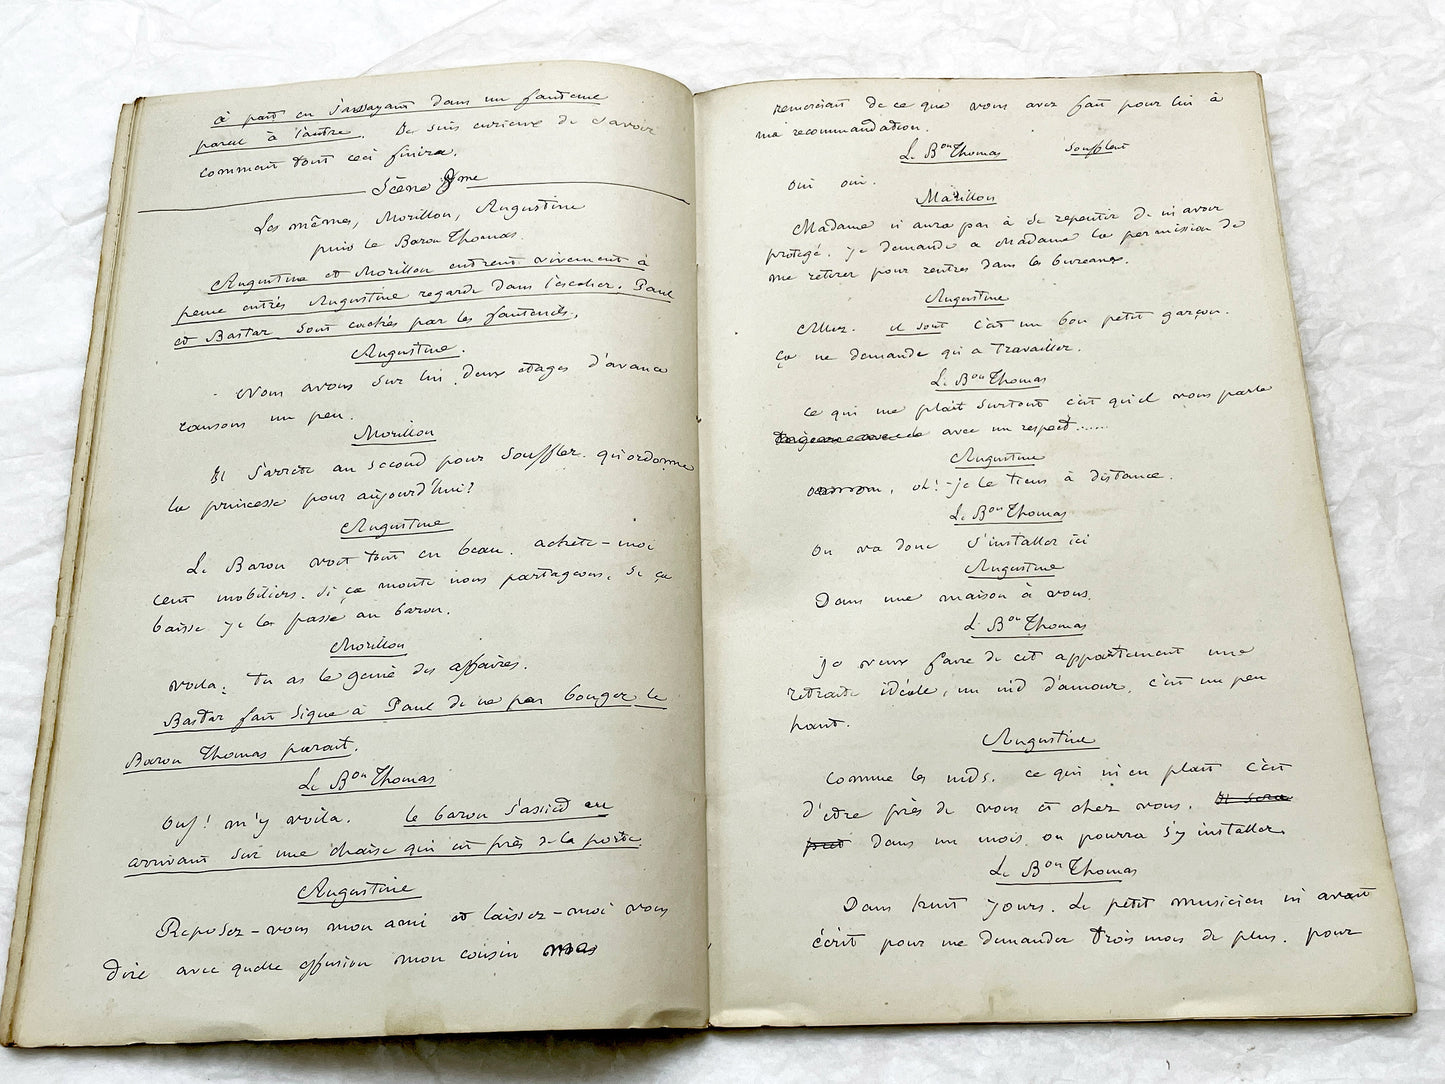 à part en s'assayant dans un fauteuil
pareil à l'autre. Je suis curieux de savoir
comment tout ceci finira.
Scène 8me
Les mêmes, Morillon, Augustine
puis le Baron Thomas.
Augustine et Morillon entrent vivement à
peine entrés Augustine regarde dans l'escalier. Paul
et Bastar sont cachés par les fauteuils.
Augustine.
Nous avons sur lui deux étages d'avance
causons un peu.
Morillon
Il s'arrête au second pour souffler. qu'ordonne
la princesse pour aujourd'hui?
Augustine
Le Baron voit tout en beau. achète-moi
cent mobiliers. si ça monte nous partageons. Si ça
baisse je les passe au baron.
Morillon
voila: tu as le génie des affaires.
Bastar fait signe à Paul de ne pas bouger le
Baron Thomas parait.
Le Bon Thomas
Ouf! m'y voila. le baron s'assied en
arrivant sur une chaise qui est près de la porte.
Augustine
Reposez-vous mon ami et laissez-moi vous
dire avec quelle effusion mon cousin vous
remerciait de ce que vous avez fait pour lui à
ma recommandation.
Le Bon Thomas soufflant
oui oui.
Morillon
Madame n'aura pas à se repentir de m'avoir
protégé. Je demande a Madame la permission de
me retirer pour rentrer dans les bureaux.
Augustine
Allez. il sort c'est un bon petit garçon.
ça ne demande qu'a travailler.
Le Bon Thomas
ce qui me plait surtout c'est qu'il vous parle
avec un respect......
Augustine
oh! je le tiens à distance.
Le Bon Thomas
On va donc s'installer ici
Augustine
Dans une maison à vous.
Le Bon Thomas
Je veux faire de cet appartement une
retraite idéale, un nid d'amour, c'est un peu
haut.
Augustine
Comme les nids. ce qui m'en plait c'est
d'être près de vous et chez vous. Il sera
dans un mois on pourra s'y installer.
Le Bon Thomas
Dans huit jours. Le petit musicien m'avait
écrit pour me demander trois mois de plus. pour